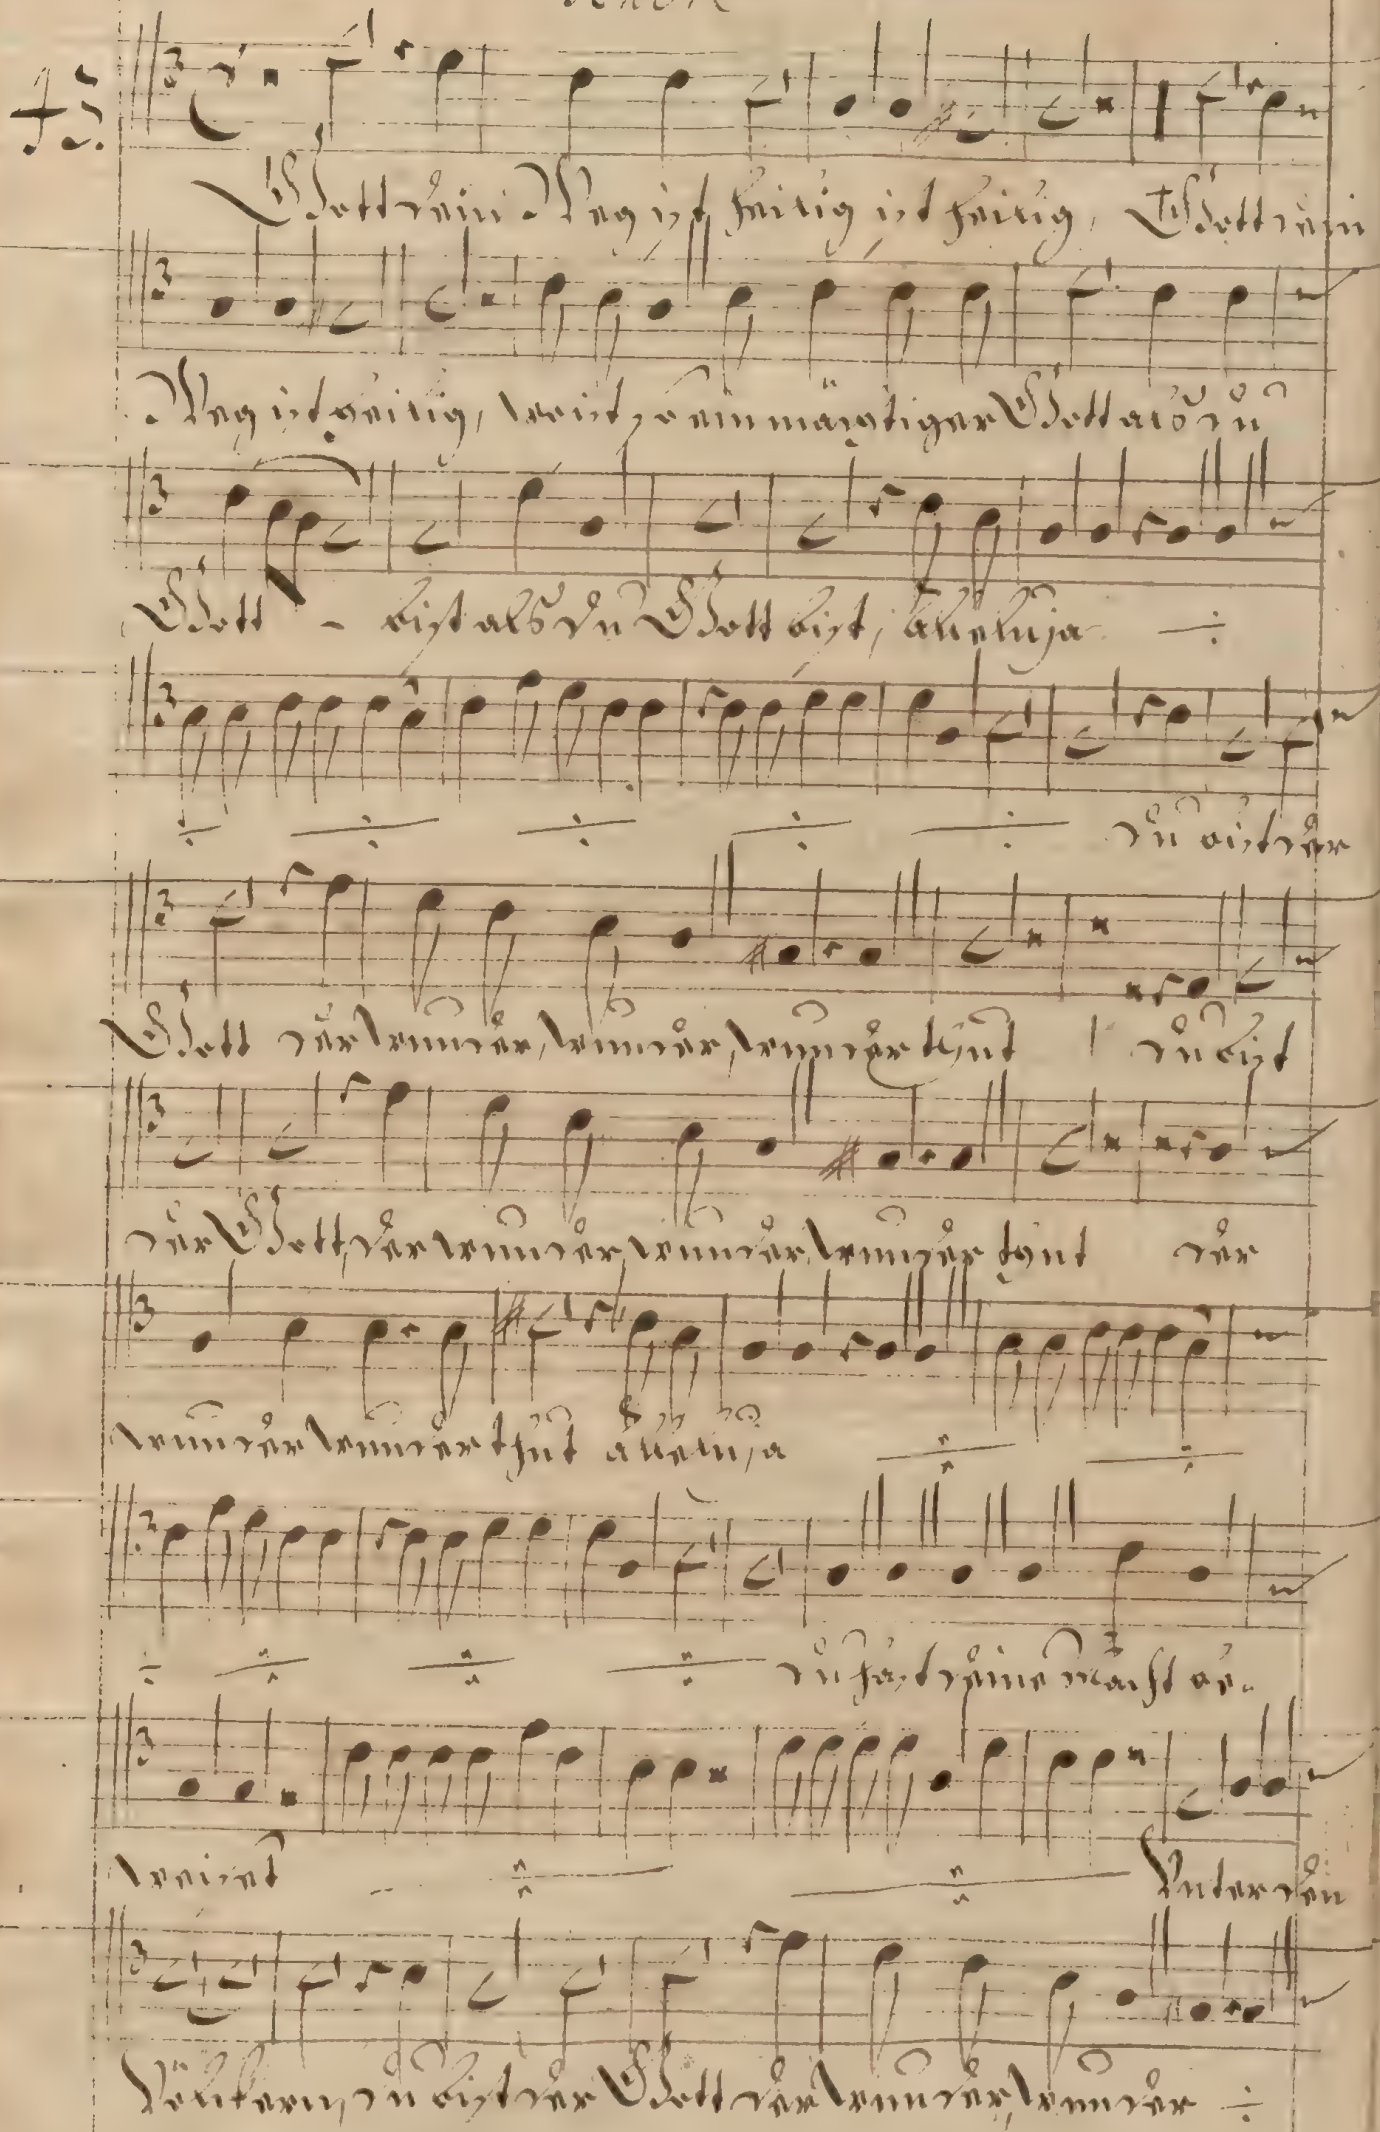 Tenore
45.
Gott dein Weg ist heilig ist heilig, Gott dein
Weg ist heilig, wo ist so ein mächtiger Gott als du
Gott - bist als du Gott bist, alleluja
du bist der
Gott der wunder, wunder, wunder thut du bist
der Gott, der wunder, wunder, wunder thut der
wunder wunder thut alleluja
du hast deine macht be-
weiset Unter den
Völckern, du bist der Gott der wunder, wunder